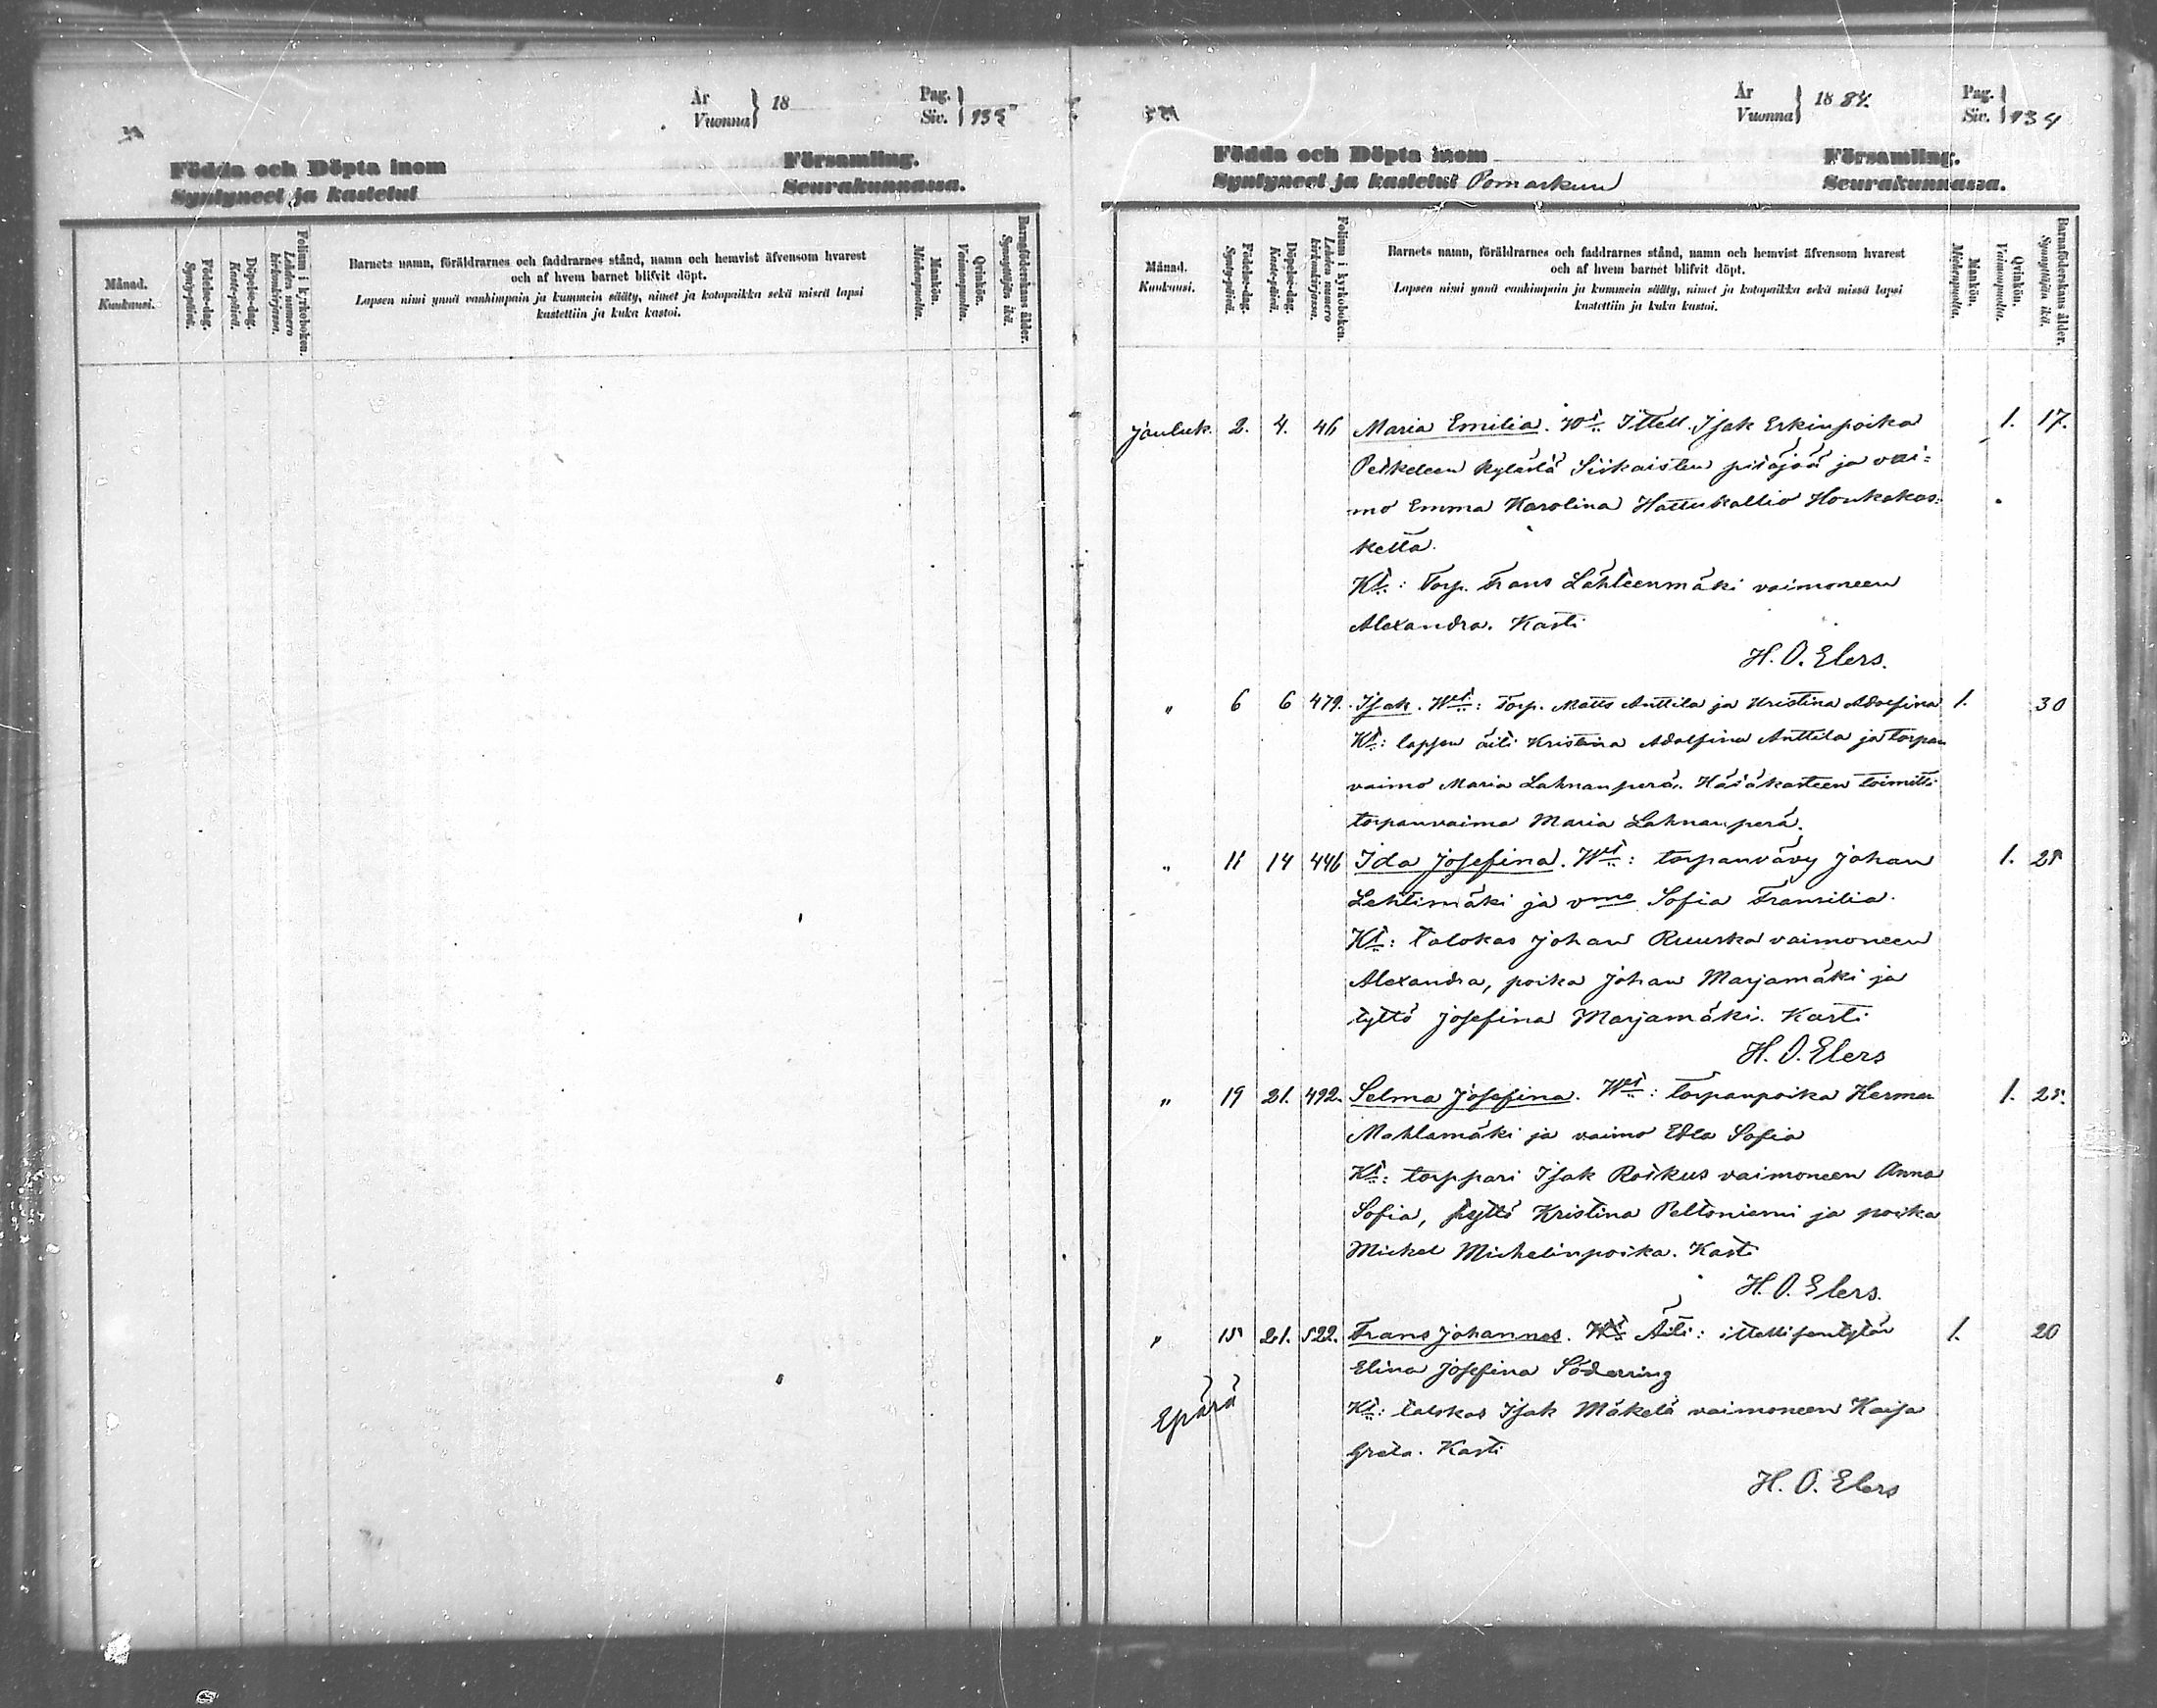 År
Vuonna } 18
Pag.
Siv. } 135
Födda och Döpta inom Församling.
Syntyneet ja kastetut Seurakunnassa.
Månad.
Kuukausi.
Födelse-dag.
Synty-päivä.
Döpelse-dag.
Kaste-päivä.
Folium i kyrkoboken.
Lehden numero kirkonkirjassa.
Barnets namn, föräldrarnes och faddrarnes stånd, namn och hemvist äfvensom hvarest
och af hvem barnet blifvit döpt.
Lapsen nimi ynnä vanhimpain ja kummein sääty, nimet ja kotopaikka sekä missä lapsi
kastettiin ja kuka kastoi.
Mankön.
Miehenpuolta.
Qvinkön.
Vaimonpuolta.
Barnaföderskans ålder.
Synnyttäjän ikä.
År
Vuonna } 1884.
Pag.
Siv. } 134
Födda och Döpta inom Församling.
Syntyneet ja kastetut Pomarkun Seurakunnassa.
Månad.
Kuukausi.
Födelse-dag.
Synty-päivä.
Döpelse-dag.
Kaste-päivä.
Folium i kyrkoboken.
Lehden numero kirkonkirjassa.
Barnets namn, föräldrarnes och faddrarnes stånd, namn och hemvist äfvensom hvarest
och af hvem barnet blifvit döpt.
Lapsen nimi ynnä vanhimpain ja kummein sääty, nimet ja kotopaikka sekä missä lapsi
kastettiin ja kuka kastoi.
Mankön.
Miehenpuolta.
Qvinkön.
Vaimonpuolta.
Barnaföderskans ålder.
Synnyttäjän ikä.
Jouluk. 2. 4. 46 Maria Emilia. Wt. Ittell. Isak Erkinpoika 1. 17.
kylästä Siikaisten pitäjää ja vai=
mo Emma Karolina Hattukallio Honkakos=
kelta.
Kt: Torp. Frans Lähteenmäki vaimoneen
Alexandra. Kasti
H. O. Elers.
" 6 6 479. Isak. Wet: Torp. Matts Anttila ja Kristina Adolfina 1. 30
Kt: lapsen äiti Kristina Adolfina Anttila ja torpan
vaimo Maria Lahnanperä. Hätäkasteen toimitti
torpanvaimo Maria Lahnanperä.
" 11 14 446 Ida Josefina. Wet: torpanvävy Johan 1. 25
Lehtimäki ja vmo Sofia Fransilia.
Kt: talokas Johan Ruuska vaimoneen
Alexandra, poika Johan Marjamäki ja
tyttö Josefina Marjamäki. Kasti
H. O. Elers
" 19 21. 492. Selma Josefina. Wet: torpanpoika Herman 1. 25.
Mahlamäki ja vaimo Edla Sofia
Kt: torppari Isak Roikus vaimoneen Anna
Sofia, tyttö Kristina Peltoniemi ja poika
Mickel Michelinpoika. Kasti
H. O. Elers.
" 15 21. 522. Frans Johannes. Äiti: ittellisentytär 1. 20
Elina Josefina Söderring
Epärä Kt: talokas Isak Mäkelä vaimoneen Kaisa
Greta. Kasti
H. O. Elers